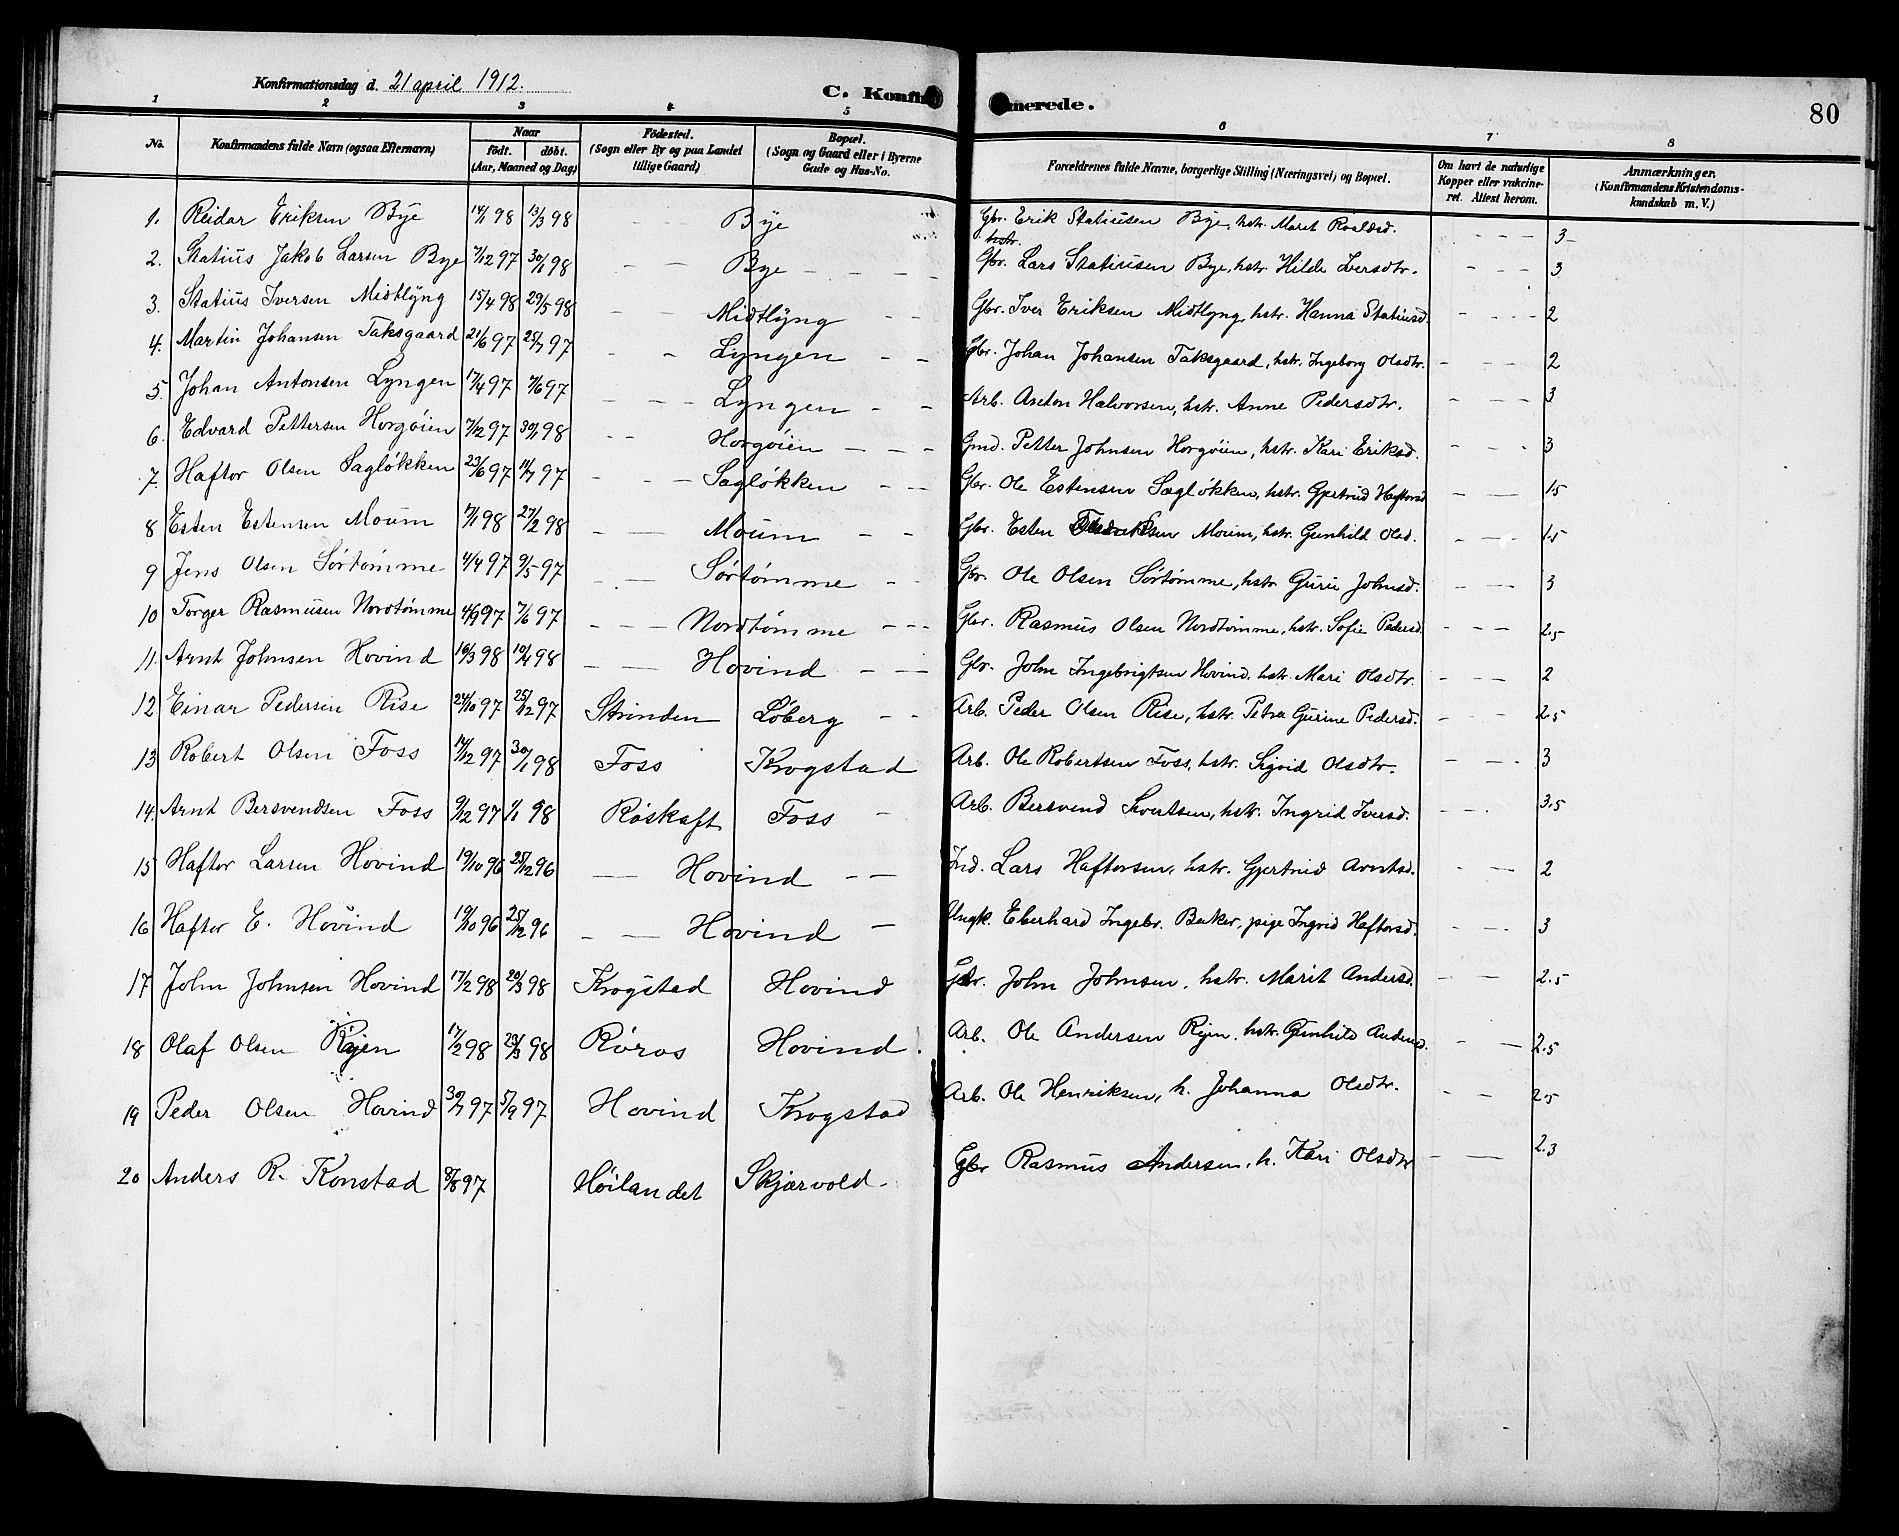 Konfirmationsdag d. 21 april 1912.
C. Konfirmerede.
80
1 2 3 4 5 6 7 8
No. Konfirmandens fulde Navn (ogsaa Efternavn) Naar født. døbt. (Aar, Maaned og Dag) Födested. (Sogn eller By og paa Landet tillige Gaard) Bopæl. (Sogn og Gaard eller i Byerne Gade og Hus-No. Forældrenes fulde Navne, borgerlige Stilling (Næringsvei) og Bopæl. Om havt de naturlige Kopper eller vakcineret. Attest herom. Anmærkninger. (Konfirmandens Kristendomskundskab m. V.)
1. Reidar Eriksen Bye 14/1 98 13/3 98 – Bye Gbr. Erik Statiusen Bye, hstr. Marit Roaldsd. – – – 3
2. Statius Jakob Larsen Bye 7/12 97 30/1 98 – – Bye – – – Gbr. Lars Statiusen Bye, hstr. Hilde Iversdtr. – – – 3
3. Statius Iversen Midtlyng 15/4 98 29/5 98 – – Midtlyng – – Gbr. Iver Eriksen Midtlyng, hstr. Hanna Statiusd. – – – 2
4. Martin Johansen Taksgaard 21/6 97 25/7 97 – – Lyngen – – Gbr. Johan Johansen Taksgaard, hstr. Ingeborg Olsdtr. – – – 2
5. Johan Antonsen Lyngen 17/4 97 7/6 97 – – – Lyngen – – Arb. Anton Halvorsen, hstr. Anne Pedersdtr. – – – 3
6. Edvard Pettersen Horgøien 7/12 97 30/1 98 – – Horgøien – – – Gmd. Petter Johnsen Horgøien, hstr. Kari Eriksd. – – – 3
7. Haftor Olsen Sagløkken 23/6 97 11/7 97 – – – Sagløkken – – Gbr. Ole Estensen Sagløkken, hstr. Gjertrud Haftorsd – – 1.5
8 Esten Estensen Moum 17/1 98 27/2 98 – – Moum – – Gbr. Esten Moum, hstr. Gunhild Olsd. – – 1.5
9 Jens Olsen Sørtømme 4/4 97 9/5 97 – – Sørtømme – – Gbr. Ole Olsen Sørtømme, hstr. Guru Johnsd. – – 3
10 Torger Rasmusen Nordtømme 4/4 97 7/6 97 – – – Nordtømme – – – Gbr. Rasmus Olsen Nordtømme, hstr. Sofie Pedersd. – – – 2.5
11. Arnt Johnsen Hovind 16/3 98 10/4 98 – – Hovind – – Gbr. John Ingebrigtsen Hovind, hstr. Mari Olsdtr. – – – 2
12 Einar Pedersen Rise 24/10 97 25/12 97 Strinden Løberg – – Arb. Peder Olsen Rise, hstr. Petra Gurine Pedersd. – – – 2.5
13 Robert Olsen Foss 14/12 97 30/1 98 Foss Krogstad Arb. Ole Robertsen Foss, hstr. Sigrid Olsdtr. – – – 3
14. Arnt Bersvendsen Foss 9/12 97 1/1 98 Røskaft Foss – Arb. Bersvend Sivertsen, hstr. Ingrid Iversd. – – – 3.5
15 Haftor Larsen Hovind 19/10 96 25/12 96 – – Hovind – – Ind. Lars Haftorsen, hstr. Gjertrud Arntsd. – – – 2
16 Haftor E. Hovind 19/10 96 25/12 96 – – Hovind – Ungk. Eberhard Ingebr. Baker, pige Ingrid Haftorsd. – – – 3
17 John Johnsen Hovind 17/2 98 20/3 98 Krogstad Hovind Gbr. John Johnsen, hstr. Marit Andersd. – – 2.5
18 Olaf Olsen Ryen 17/2 98 20/3 98 Røros Hovind. Arb. Ole Andersen Ryen, hstr. Gunhild Andersd. – – 2.5
19 Peder Olsen Hovind 30/7 97 5/9 97 Hovind Krogstad Arb. Ole Henriksen, h. Johanna Olsdtr. – – 2.5
20 Anders R. Konstad 8/8 97 Høilandet Skjærvold. Gbr Rasmus Andersen, h. Kari Olsdtr – – 2.3